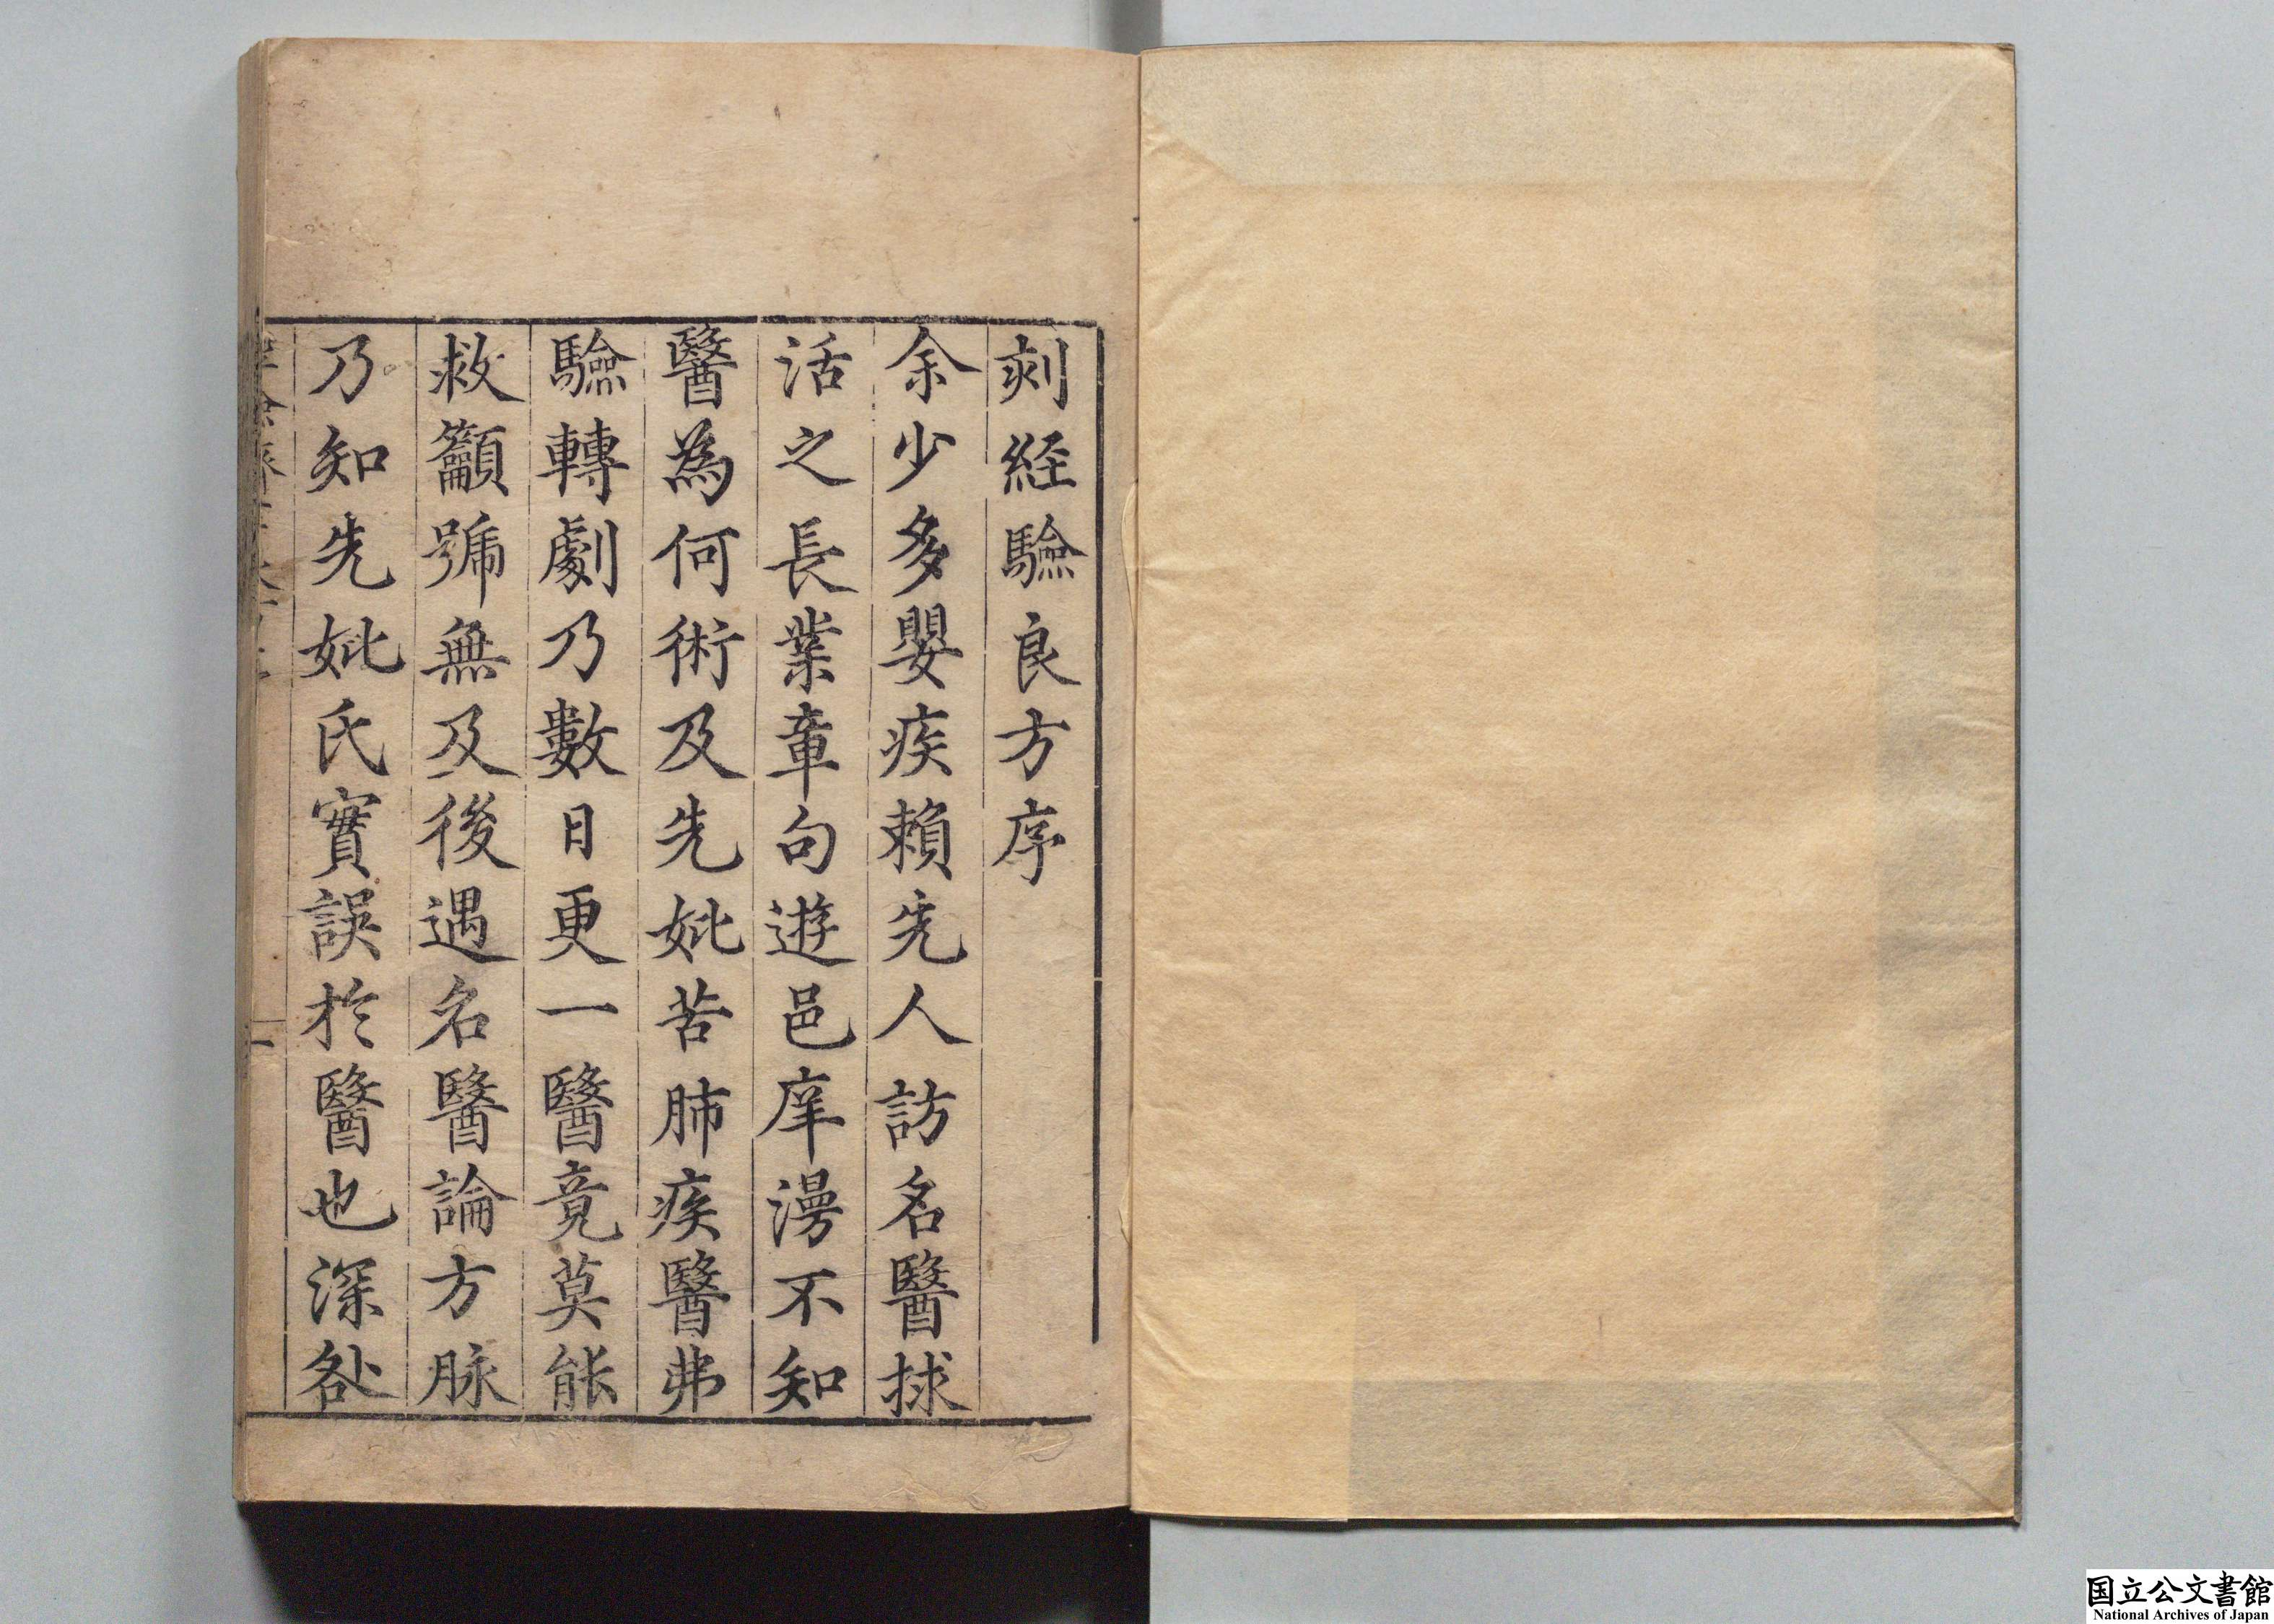 刻経驗良方序
余少多嬰疾賴先人訪名醫捄
活之長業章句遊邑庠漫不知
醫為何術及先妣苦肺疾醫弗
驗轉劇乃數日更一醫竟莫能
救籲號無及後遇名醫論方脉
乃知先妣氏實誤於醫也深咎
国立公文書館
National Archives of Japan